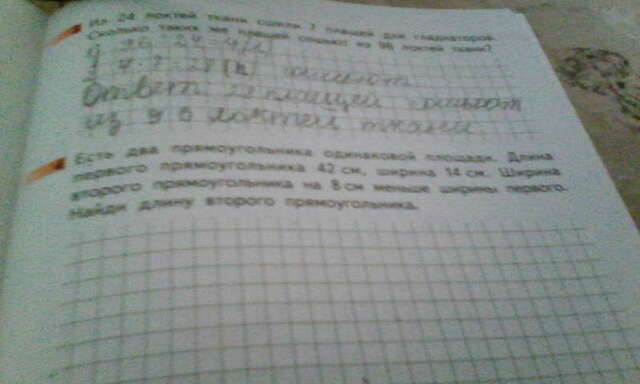 Из 24 локтей ткани сшили 7 плащей для гладиаторов.
Сколько таких же плащей сошьют из 96 локтей ткани?
1) 96 : 24 = 4 (р)
2) 4 · 7 = 28 (п) сошьют
Ответ: 28 плащей сошьют
из 96 локтей ткани.
Есть два прямоугольника одинаковой площади. Длина
первого прямоугольника 42 см, ширина 14 см. Ширина
второго прямоугольника на 8 см меньше ширины первого.
Найди длину второго прямоугольника.